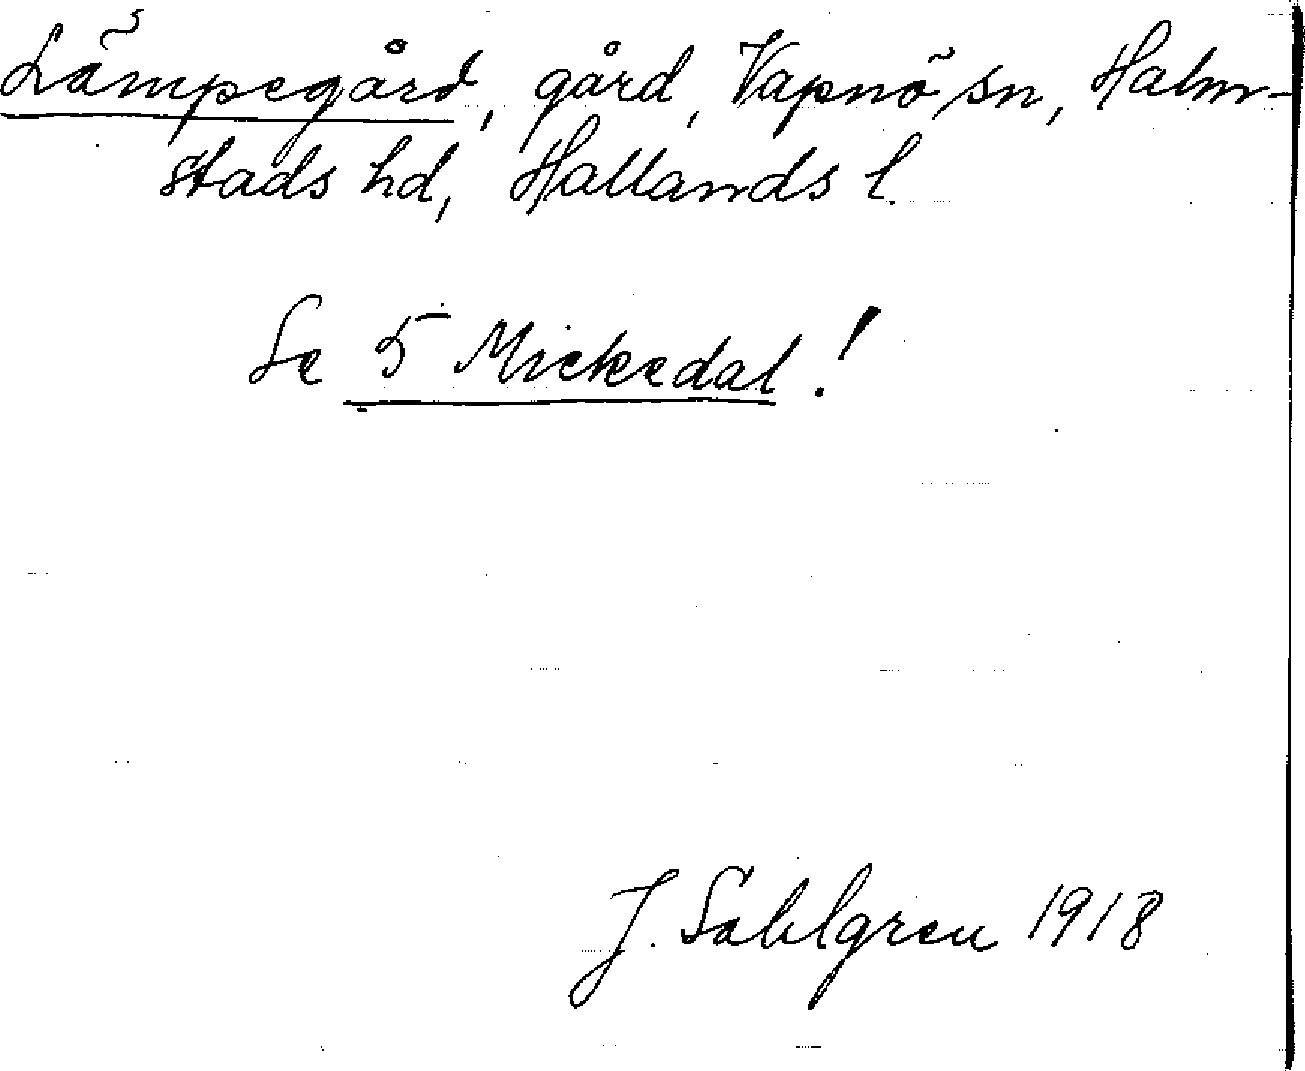 Lämpegård, gård, Vapnö sn, Halm-
stads hd, Hallands l.
Se 5 Mickedal!
J. Sahlgren 1918